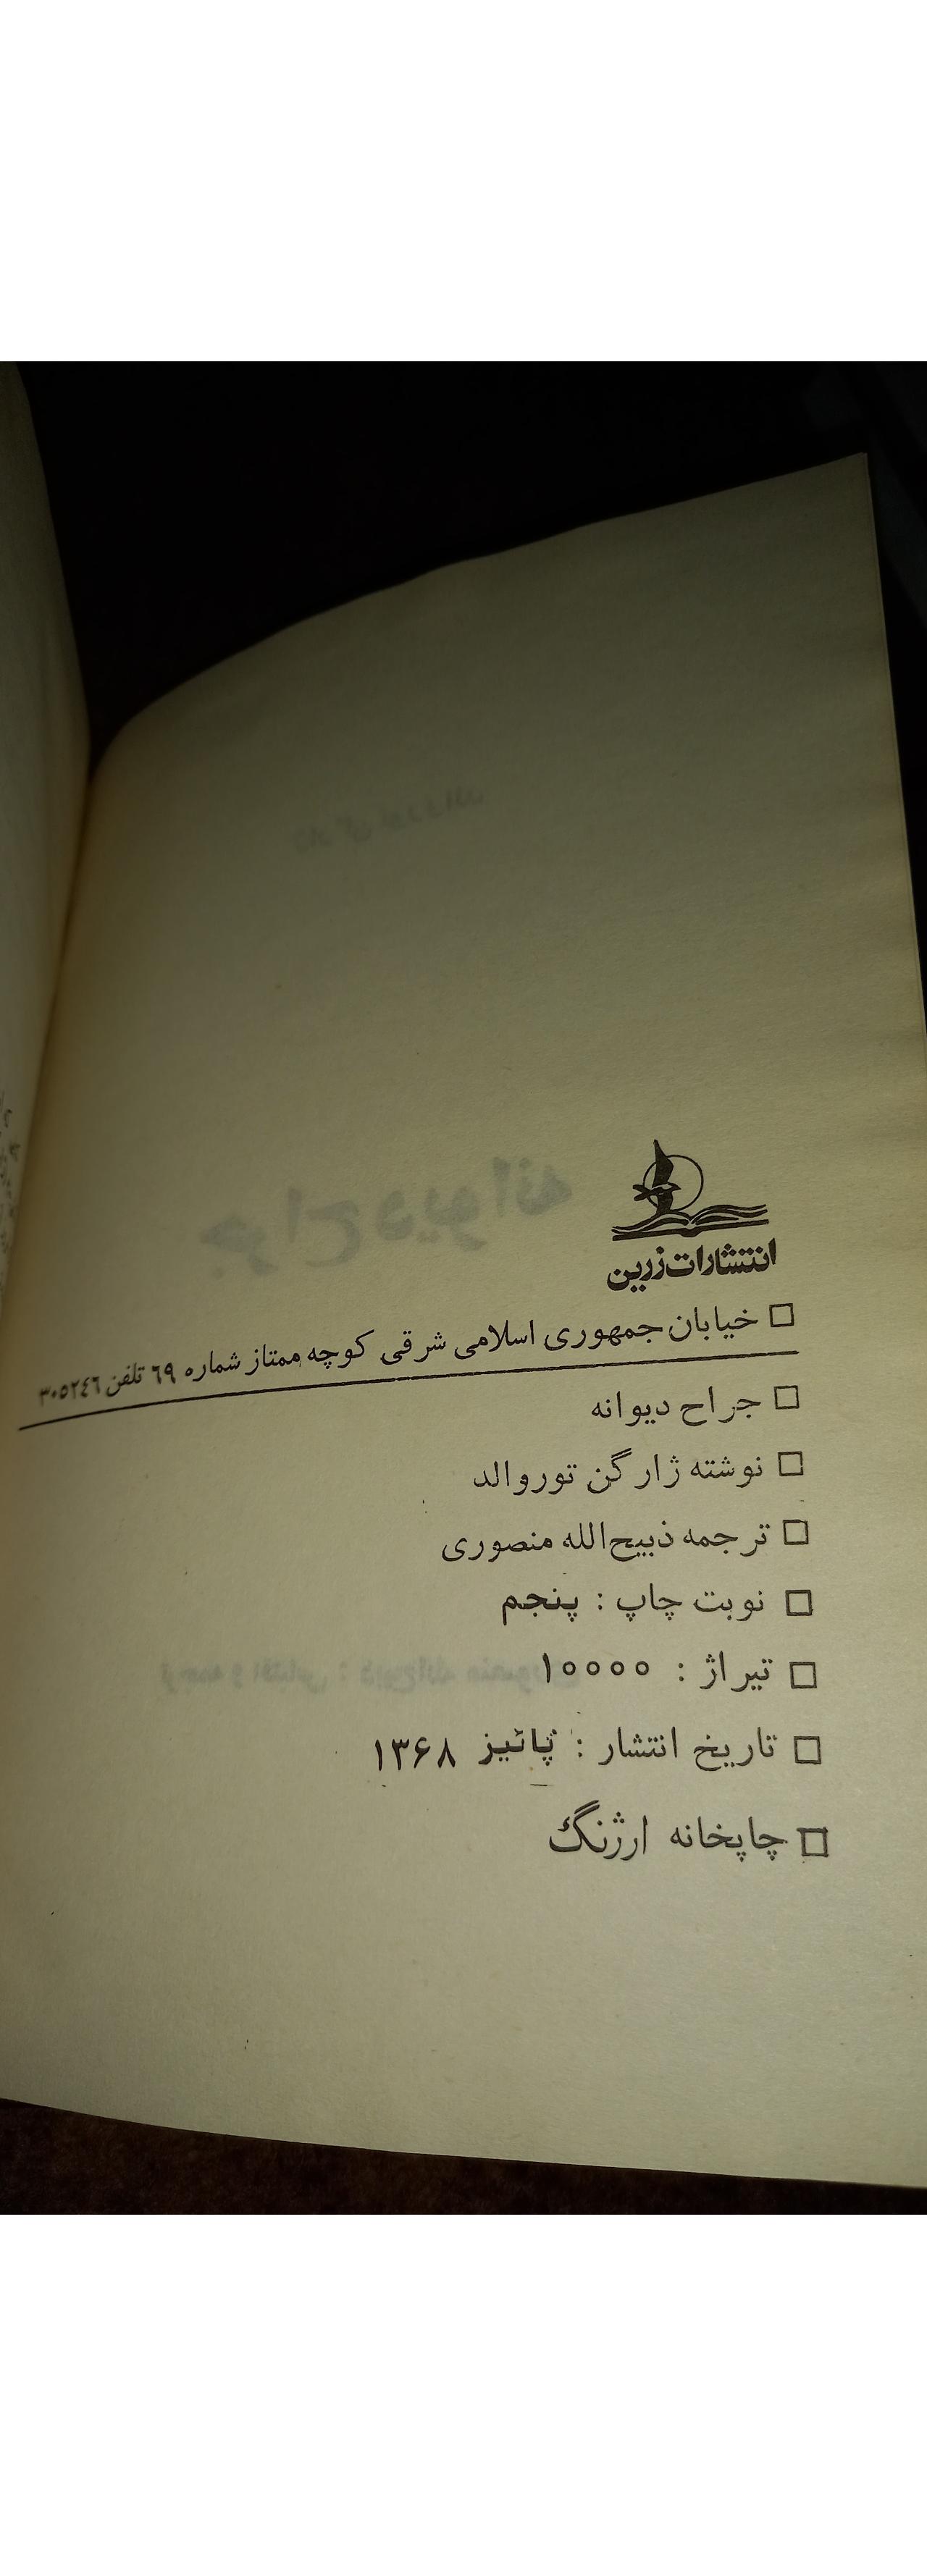 انتشارات زرین
□ خیابان جمهوری اسلامی شرقی کوچه ممتاز شماره ٦٩ تلفن ٣٠٥٢٤٦
□ جراح دیوانه
□ نوشته ژارگن توروالد
□ ترجمه ذبیح‌الله منصوری
□ نوبت چاپ : پنجم
□ تیراژ : ۱۰۰۰۰
□ تاریخ انتشار : پائیز ۱۳۶۸
□ چاپخانه ارژنگ